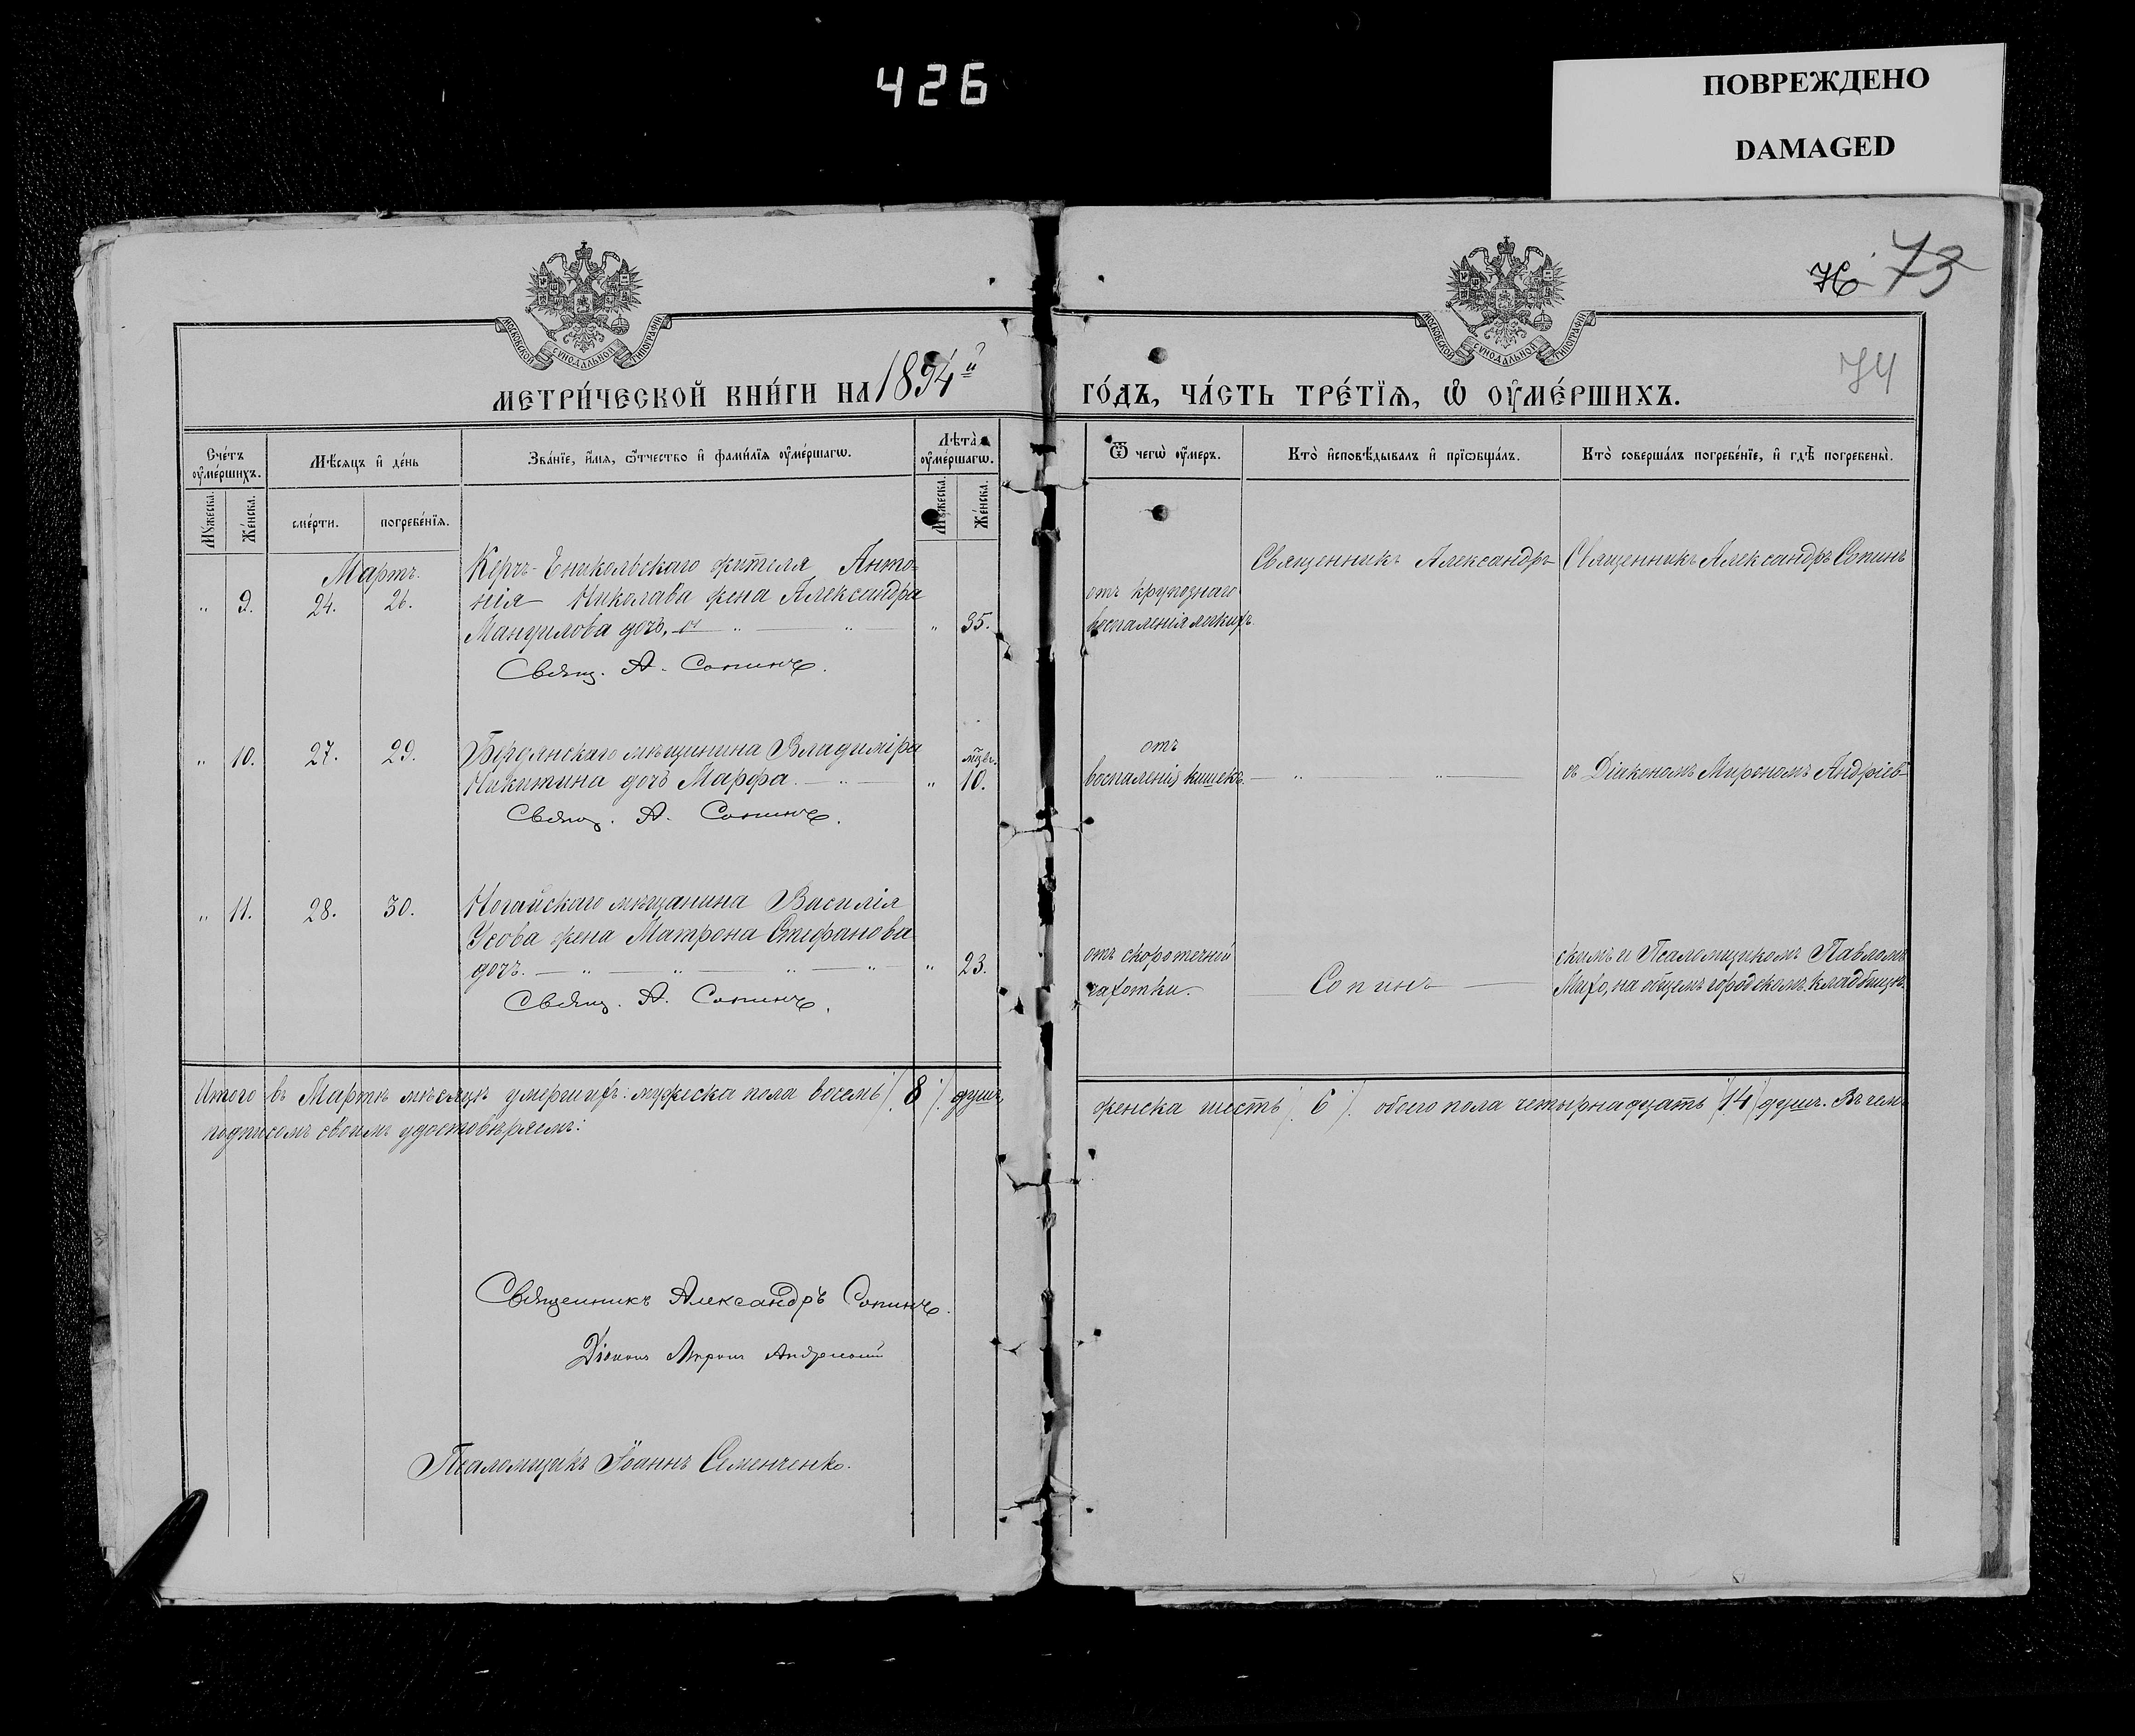 426
ПОВРЕЖДЕНО
DAMAGED
73
74
МОСКОВСКОЙ СѴНОДАЛЬНОЙ ТИПОГРАФІИ
МОСКОВСКОЙ СѴНОДАЛЬНОЙ ТИПОГРАФІИ
МЕТРИ́ЧЕСКОЙ КНИ́ГИ НА 1894й ГО́ДЪ, ЧА́СТЬ ТРЕ́ТЇѦ, Ѡ ОУ҆МЕ́РШИХЪ.
Сче́тъ оу҆ме́ршихъ.
Мѣ́сѧцъ и҆ де́нь
Зва́нїе, и҆́мѧ, ѻ҆́тчество и҆ фами́лїѧ оу҆ме́ршагѡ.
Лѣта̀ оу҆ме́ршагѡ.
Ѿ чегѡ̀ оу҆́меръ.
Кто̀ и҆сповѣ́дывалъ и҆ прїѡбща́лъ.
Кто̀ соверша́лъ погребе́нїе, и҆ гдѣ̀ погребены̀.
Мꙋ́жеска.
Же́нска.
сме́рти.
погребе́нїѧ.
Мꙋ́жеска.
Же́нска.
Мартъ.
Керчь-Еникольскаго жителя Анто-
" 9. 24. 26. нія Николава жена Александра
Мануилова дочь. " 35.
Свящ. А. Сопинъ.
отъ крупознаго
воспаленія легкихъ
Священникъ Александръ
Священникъ Александръ Сопинъ
" 10. 27. 29. Бердянскаго мѣщанина Владиміра
Никитина дочь Марфа. " мцев. 10.
Свящ. А. Сопинъ.
отъ
воспаленія кишекъ.
съ Діакономъ Мирономъ Андріев-
" 11. 28. 30. Ногайскаго мѣщанина Василія
Усова жена Матрона Стефанова
дочь. " 23.
Свящ. А. Сопинъ.
отъ скоротечной
чахотки.
Сопинъ
скимъ и Псаломщикомъ Павломъ
на общемъ городскомъ кладбищѣ.
Итого въ Мартѣ мѣсяцѣ умершихъ: мужеска пола восемь /. 8 ./ душъ, женска шесть /. 6 /. обоего пола четырнадцать /14/ душъ. Въ чемъ
подписомъ своимъ удостовѣряемъ:
Священникъ Александръ Сопинъ.
Діаконъ Миронъ Андріевскій
Псаломщикъ Іоаннъ Семенченко.